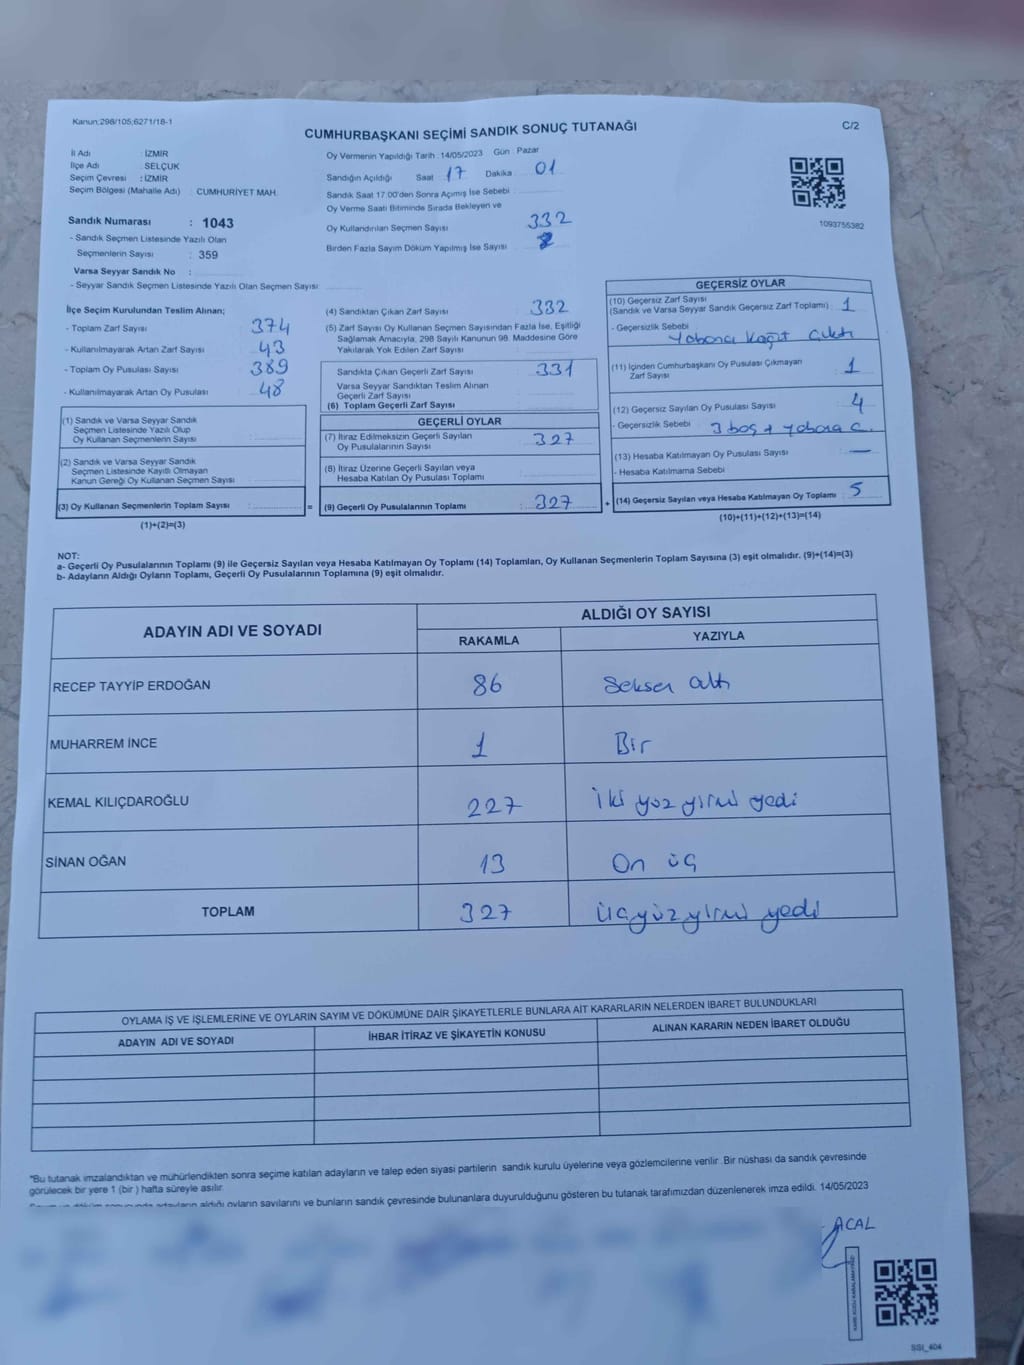 Kanun:298/105;6271/18-1
CUMHURBAŞKANI SEÇİMİ SANDIK SONUÇ TUTANAĞI
C/2
İl Adı : İZMİR
İlçe Adı : SELÇUK
Seçim Çevresi : İZMİR
Seçim Bölgesi (Mahalle Adı) : CUMHURİYET MAH.
Sandık Numarası : 1043
- Sandık Seçmen Listesinde Yazılı Olan
Seçmenlerin Sayısı : 359
Varsa Seyyar Sandık No :
- Seyyar Sandık Seçmen Listesinde Yazılı Olan Seçmen Sayısı:
Oy Vermenin Yapıldığı Tarih : 14/05/2023 Gün : Pazar
Sandığın Açıldığı Saat 17 Dakika 01
Sandık Saat 17:00'den Sonra Açımış İse Sebebi :
Oy Verme Saati Bitiminde Sırada Bekleyen ve
Oy Kullandırılan Seçmen Sayısı 332
Birden Fazla Sayım Döküm Yapılmış İse Sayısı
1093755382
İlçe Seçim Kurulundan Teslim Alınan;
- Toplam Zarf Sayısı 374
- Kullanılmayarak Artan Zarf Sayısı 43
- Toplam Oy Pusulası Sayısı 389
- Kullanılmayarak Artan Oy Pusulası 48
(1) Sandık ve Varsa Seyyar Sandık
Seçmen Listesinde Yazılı Olup
Oy Kullanan Seçmenlerin Sayısı :
(2) Sandık ve Varsa Seyyar Sandık
Seçmen Listesinde Kayıtlı Olmayan
Kanun Gereği Oy Kullanan Seçmen Sayısı :
(3) Oy Kullanan Seçmenlerin Toplam Sayısı :
(1)+(2)=(3)
=
(4) Sandıktan Çıkan Zarf Sayısı 332
(5) Zarf Sayısı Oy Kullanan Seçmen Sayısından Fazla İse, Eşitliği
Sağlamak Amacıyla, 298 Sayılı Kanunun 98. Maddesine Göre
Yakılarak Yok Edilen Zarf Sayısı
Sandıkta Çıkan Geçerli Zarf Sayısı 331
Varsa Seyyar Sandıktan Teslim Alınan
Geçerli Zarf Sayısı
(6) Toplam Geçerli Zarf Sayısı
GEÇERLİ OYLAR
(7) İtiraz Edilmeksizin Geçerli Sayılan
Oy Pusulalarının Sayısı : 327
(8) İtiraz Üzerine Geçerli Sayılan veya
Hesaba Katılan Oy Pusulası Toplamı :
(9) Geçerli Oy Pusulalarının Toplamı : 327
+
GEÇERSİZ OYLAR
(10) Geçersiz Zarf Sayısı
(Sandık ve Varsa Seyyar Sandık Geçersiz Zarf Toplamı) : 1
- Geçersizlik Sebebi
Yabancı kağıt çıktı
(11) İçinden Cumhurbaşkanı Oy Pusulası Çıkmayan
Zarf Sayısı 1
(12) Geçersiz Sayılan Oy Pusulası Sayısı 4
- Geçersizlik Sebebi 3 boş +
(13) Hesaba Katılmayan Oy Pusulası Sayısı —
- Hesaba Katılmama Sebebi
(14) Geçersiz Sayılan veya Hesaba Katılmayan Oy Toplamı 5
(10)+(11)+(12)+(13)=(14)
NOT:
a- Geçerli Oy Pusulalarının Toplamı (9) ile Geçersiz Sayılan veya Hesaba Katılmayan Oy Toplamı (14) Toplamları, Oy Kullanan Seçmenlerin Toplam Sayısına (3) eşit olmalıdır. (9)+(14)=(3)
b- Adayların Aldığı Oyların Toplamı, Geçerli Oy Pusulalarının Toplamına (9) eşit olmalıdır.
ADAYIN ADI VE SOYADI
ALDIĞI OY SAYISI
RAKAMLA YAZIYLA
RECEP TAYYİP ERDOĞAN 86 Seksen altı
MUHARREM İNCE 1 Bir
KEMAL KILIÇDAROĞLU 227 İki yüz yirmi yedi
SİNAN OĞAN 13 On üç
TOPLAM 327 Üçyüz yirmi yedi
OYLAMA İŞ VE İŞLEMLERİNE VE OYLARIN SAYIM VE DÖKÜMÜNE DAİR ŞİKAYETLERLE BUNLARA AİT KARARLARIN NELERDEN İBARET BULUNDUKLARI
ADAYIN ADI VE SOYADI İHBAR İTİRAZ VE ŞİKAYETİN KONUSU ALINAN KARARIN NEDEN İBARET OLDUĞU
*Bu tutanak imzalandıktan ve mühürlendikten sonra seçime katılan adayların ve talep eden siyasi partilerin sandık kurulu üyelerine veya gözlemcilerine verilir. Bir nüshası da sandık çevresinde
görülecek bir yere 1 (bir ) hafta süreyle asılır.
adayların aldığı oyların sayılarını ve bunların sandık çevresinde bulunanlara duyurulduğunu gösteren bu tutanak tarafımızdan düzenlenerek imza edildi. 14/05/2023
ACAL
SSI_404